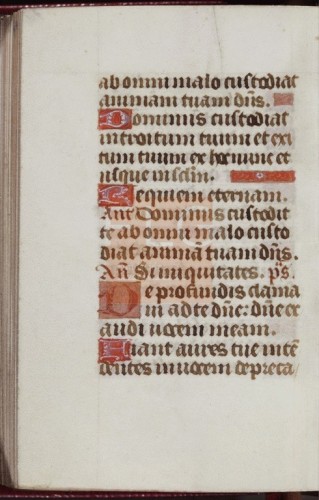 ab omni malo custodiat
animam tuam dñs.
Dominus custodiat
introitum tuum et exi
tum tuum ex hoc nunc et
usque in sclm.
Requiem eternam.
Ant Dominus custodit
te ab omni malo custo
diat animã tuam dñs.
Añ Si iniquitates. ps.
De profundis clama
ui ad te dñe: dñe ex
audi uocem meam.
Fiant aures tue intẽ
dentes in uocem depreca